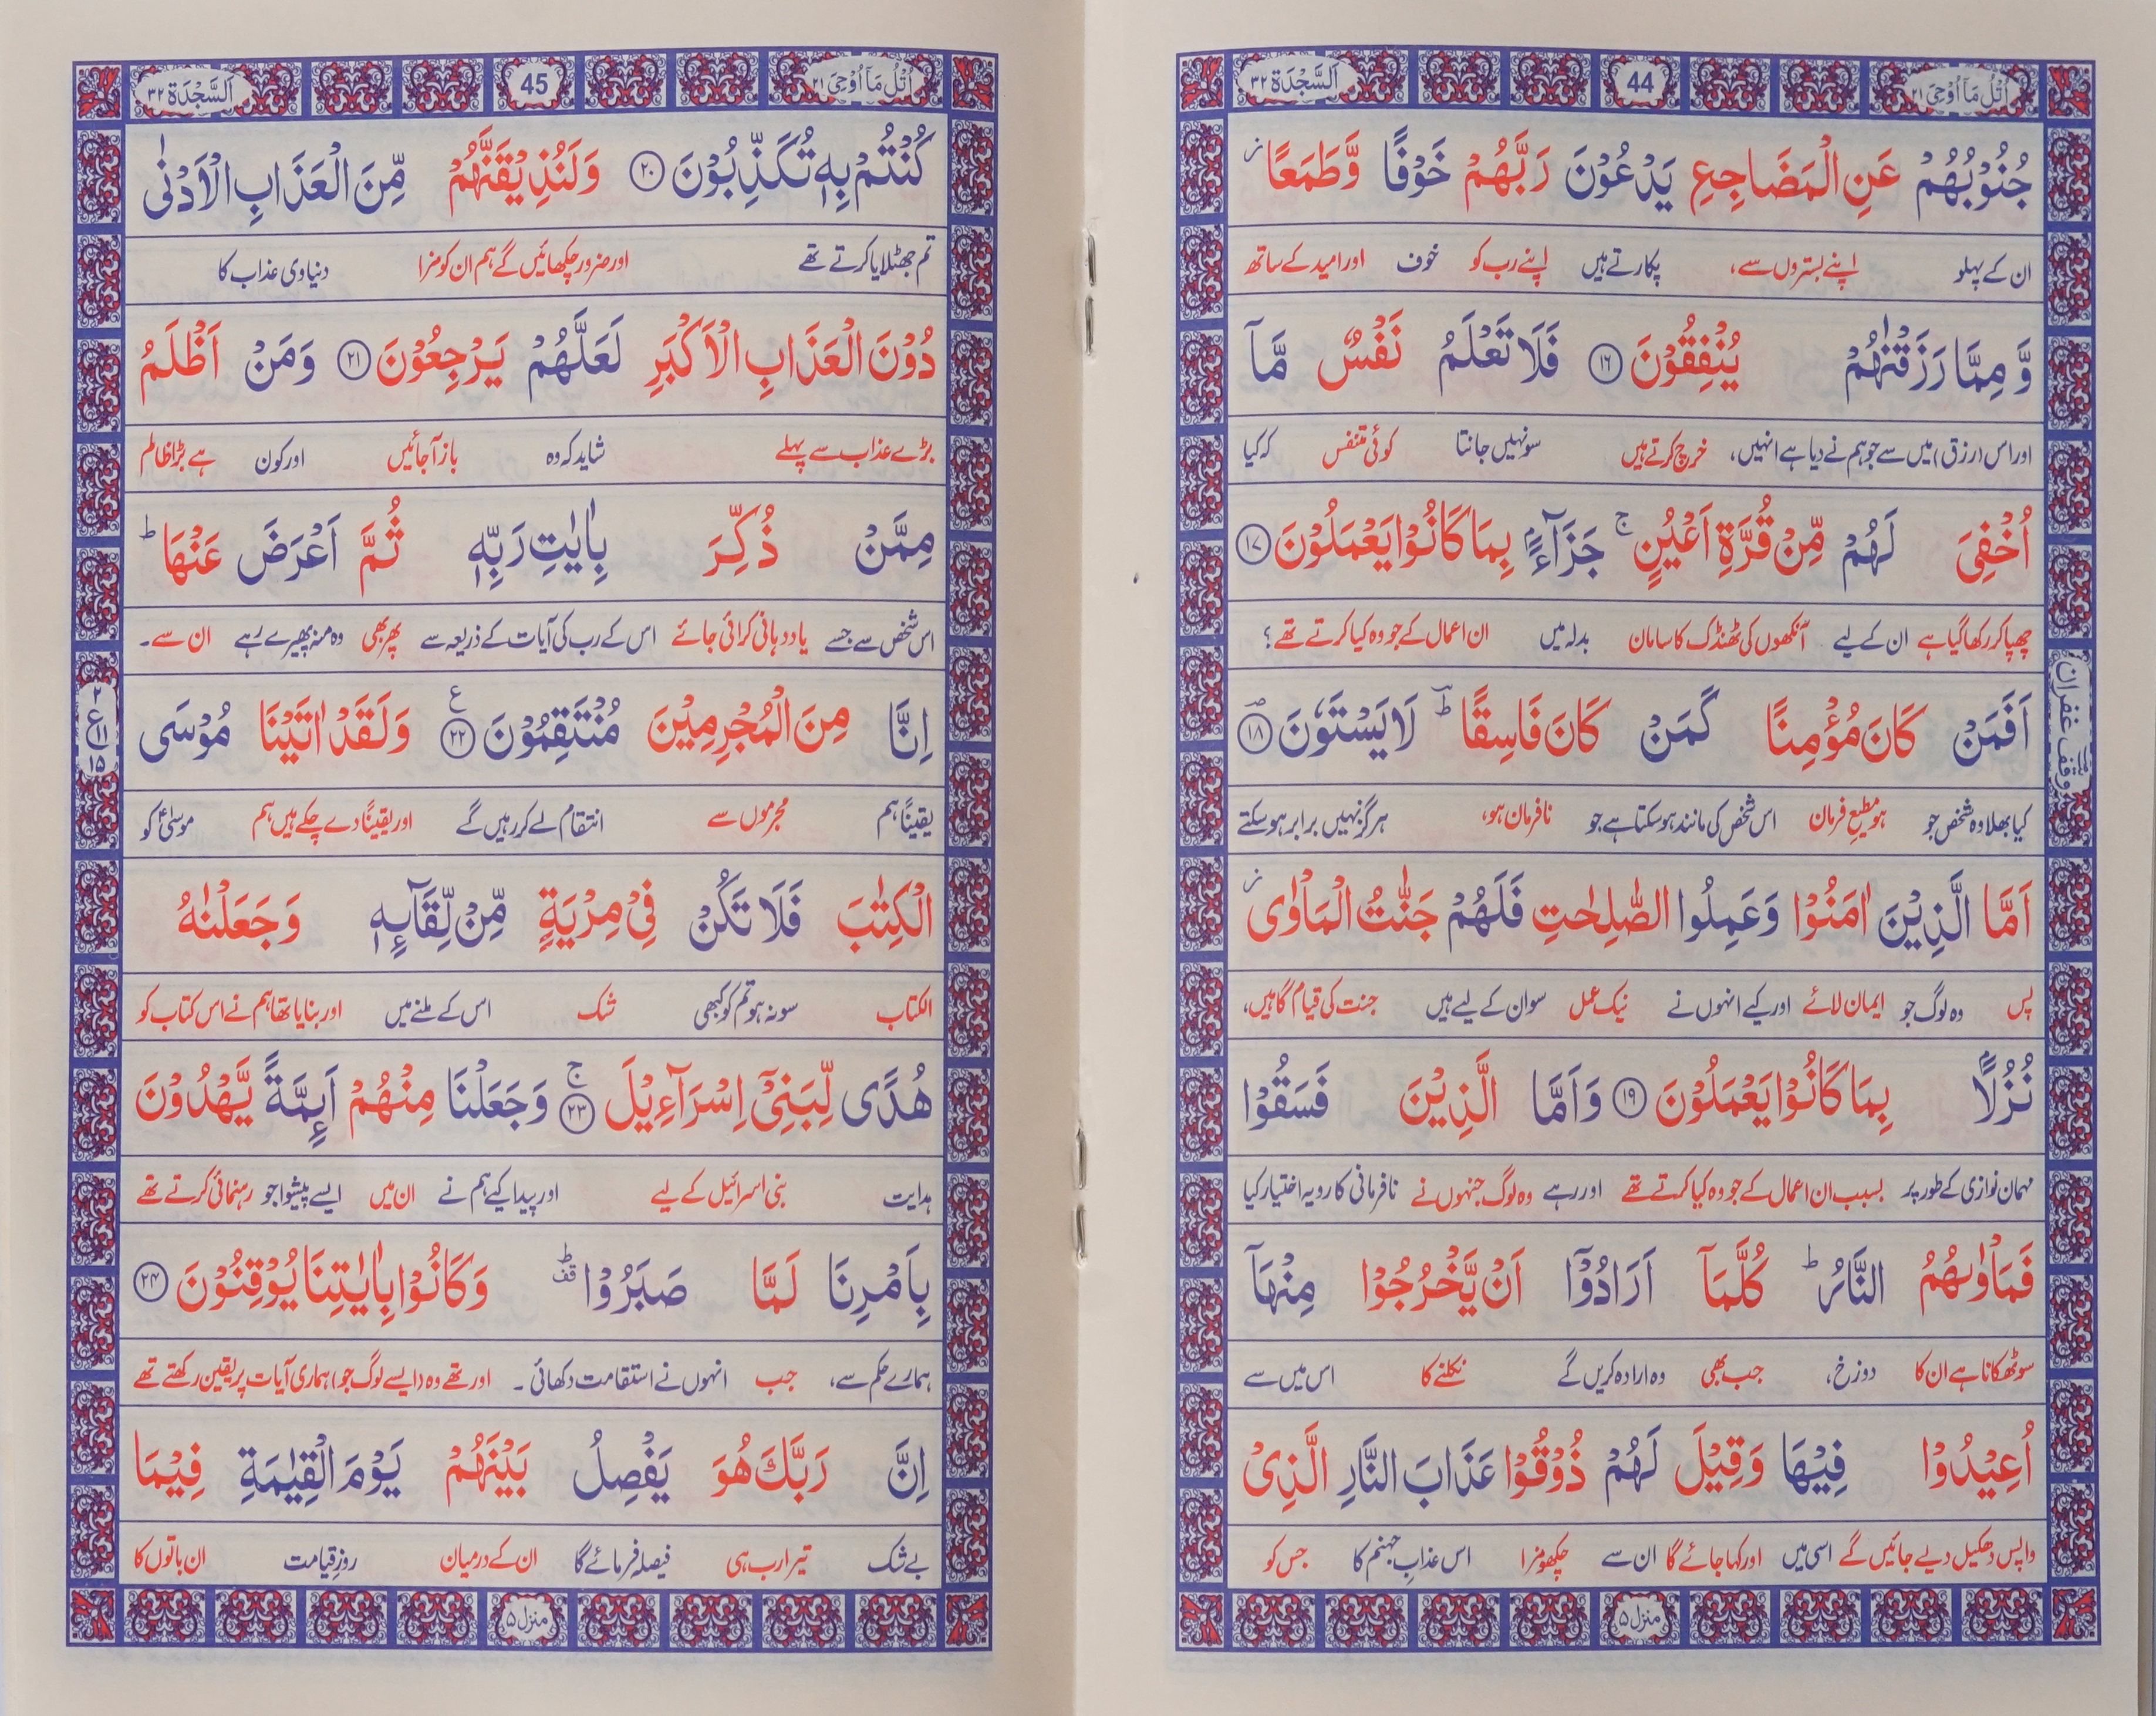 اُتْلُ مَاۤ اُوْحِیَ ٢١ 44 اَلسَّجْدَة ٣٢
جُنُوْبُهُمْ عَنِ الْمَضَاجِعِ یَدْعُوْنَ رَبَّهُمْ خَوْفًا وَّطَمَعًا ز
ان کے پہلو اپنے بستروں سے، پکارتے ہیں اپنے رب کو خوف اور امید کے ساتھ
وَّ مِمَّا رَزَقْنٰهُمْ یُنْفِقُوْنَ ﴿۱۶﴾ فَلَا تَعْلَمُ نَفْسٌ مَّاۤ
اور اس (رزق) میں سے جو ہم نے دیا ہے انہیں، خرچ کرتے ہیں سو نہیں جانتا کوئی متنفس کہ کیا
اُخْفِیَ لَهُمْ مِّنْ قُرَّةِ اَعْیُنٍ ۚ جَزَآءًۢ بِمَا كَانُوْا یَعْمَلُوْنَ ﴿۱۷﴾
چھپا کر رکھا گیا ہے ان کے لیے آنکھوں کی ٹھنڈک کا سامان بدلہ میں ان اعمال کے جو وہ کیا کرتے تھے؟
اَفَمَنْ كَانَ مُؤْمِنًا كَمَنْ كَانَ فَاسِقًا ؕ لَا یَسْتَوٗنَ ﴿۱۸﴾
کیا بھلا وہ شخص جو ہو مطیعِ فرمان اس شخص کی مانند ہو سکتا ہے جو نافرمان ہو، ہرگز نہیں برابر ہو سکتے
وقف غفران
اَمَّا الَّذِیْنَ اٰمَنُوْا وَعَمِلُوا الصّٰلِحٰتِ فَلَهُمْ جَنّٰتُ الْمَاْوٰی ز
پس وہ لوگ جو ایمان لائے اور کیے انہوں نے نیک عمل سو ان کے لیے ہیں جنت کی قیام گاہیں،
نُزُلًۢا بِمَا كَانُوْا یَعْمَلُوْنَ ﴿۱۹﴾ وَاَمَّا الَّذِیْنَ فَسَقُوْا
مہمان نوازی کے طور پر بسبب ان اعمال کے جو وہ کیا کرتے تھے اور رہے وہ لوگ جنہوں نے نافرمانی کا رویہ اختیار کیا
فَمَاْوٰىهُمُ النَّارُ ؕ كُلَّمَاۤ اَرَادُوْۤا اَنْ یَّخْرُجُوْا مِنْهَاۤ
سو ٹھکانا ہے ان کا دوزخ، جب بھی وہ ارادہ کریں گے نکلنے کا اس میں سے
اُعِیْدُوْا فِیْهَا وَقِیْلَ لَهُمْ ذُوْقُوْا عَذَابَ النَّارِ الَّذِیْ
واپس دھکیل دیے جائیں گے اسی میں اور کہا جائے گا ان سے چکھو مزا اس عذابِ جہنم کا جس کو
منزل ۵
اُتْلُ مَاۤ اُوْحِیَ ٢١ 45 اَلسَّجْدَة ٣٢
كُنْتُمْ بِهٖ تُكَذِّبُوْنَ ﴿۲۰﴾ وَلَنُذِیْقَنَّهُمْ مِّنَ الْعَذَابِ الْاَدْنٰی
تم جھٹلایا کرتے تھے اور ضرور چکھائیں گے ہم ان کو مزا دنیاوی عذاب کا
دُوْنَ الْعَذَابِ الْاَكْبَرِ لَعَلَّهُمْ یَرْجِعُوْنَ ﴿۲۱﴾ وَمَنْ اَظْلَمُ
بڑے عذاب سے پہلے شاید کہ وہ باز آ جائیں اور کون ہے بڑا ظالم
مِمَّنْ ذُكِّرَ بِاٰیٰتِ رَبِّهٖ ثُمَّ اَعْرَضَ عَنْهَا ؕ
اس شخص سے جسے یاد دہانی کرائی جائے اس کے رب کی آیات کے ذریعہ سے پھر بھی وہ منہ پھیرے رہے ان سے۔
اِنَّا مِنَ الْمُجْرِمِیْنَ مُنْتَقِمُوْنَ ﴿۲۲﴾ ع وَلَقَدْ اٰتَیْنَا مُوْسَی
۲ ع ۱۱ ۱۵
یقیناً ہم مجرموں سے انتقام لے کر رہیں گے اور یقیناً دے چکے ہیں ہم موسیٰؑ کو
الْكِتٰبَ فَلَا تَكُنْ فِیْ مِرْیَةٍ مِّنْ لِّقَآىِٕهٖ وَجَعَلْنٰهُ
الکتاب سو نہ ہو تم کو کبھی شک اس کے ملنے میں اور بنایا تھا ہم نے اس کتاب کو
هُدًی لِّبَنِیْۤ اِسْرَآءِیْلَ ﴿۲۳﴾ ۚ وَجَعَلْنَا مِنْهُمْ اَىِٕمَّةً یَّهْدُوْنَ
ہدایت بنی اسرائیل کے لیے اور پیدا کیے ہم نے ان میں ایسے پیشوا جو رہنمائی کرتے تھے
بِاَمْرِنَا لَمَّا صَبَرُوْا ؕ قف وَكَانُوْا بِاٰیٰتِنَا یُوْقِنُوْنَ ﴿۲۴﴾
ہمارے حکم سے، جب انہوں نے استقامت دکھائی۔ اور تھے وہ (ایسے لوگ جو) ہماری آیات پر یقین رکھتے تھے
اِنَّ رَبَّكَ هُوَ یَفْصِلُ بَیْنَهُمْ یَوْمَ الْقِیٰمَةِ فِیْمَا
بے شک تیرا رب ہی فیصلہ فرمائے گا ان کے درمیان روزِ قیامت ان باتوں کا
منزل ۵